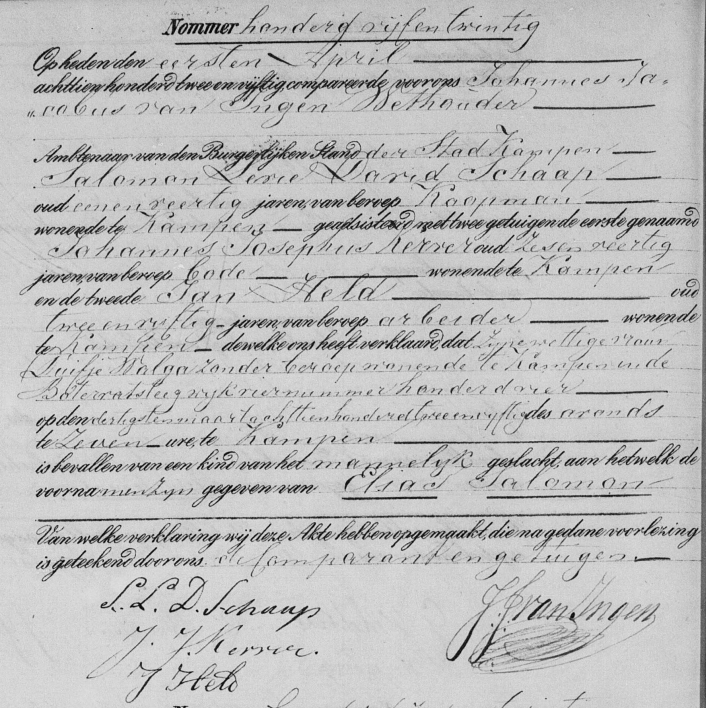 Nommer honderd vijfentwintig
Op heden den eersten April
achttien honderd twee en vijftig compareerde voor ons Johannes Ja=
"cobus van Ingen Wethouder
Ambtenaar van den Burgerlijken Stand der Stad Kampen
Salomon Levie David Schaap
oud eenenveertig jaren, van beroep Koopman
wonende te Kampen, geadsisteerd met twee getuigen de eerste genaamd
Johannes Josephus Kerrer oud zesenveertig
jaren, van beroep Bode wonende te Kampen
en de tweede Jan Held oud
tweeenvijftig jaren, van beroep arbeider wonende
te Kampen dewelke ons heeft verklaard, dat zijne wettige vrouw
Duifje Walga zonder beroep wonende te Kampen in de
Botervatsteeg wijk vier nummer honderd vier
op den dertigsten maart achttienhonderd tweeenvijftig des avonds
te zeven ure, te Kampen
is bevallen van een kind van het mannelijk geslacht, aan hetwelk de
voornamen zijn gegeven van Elsas Salomon
Van welke verklaring wij deze Akte hebben opgemaakt, die na gedane voorlezing
is geteekend door ons de Comparant en getuigen.
S. L. D. Schaap
J. J. van Ingen
J. J. Kerrer.
J Held